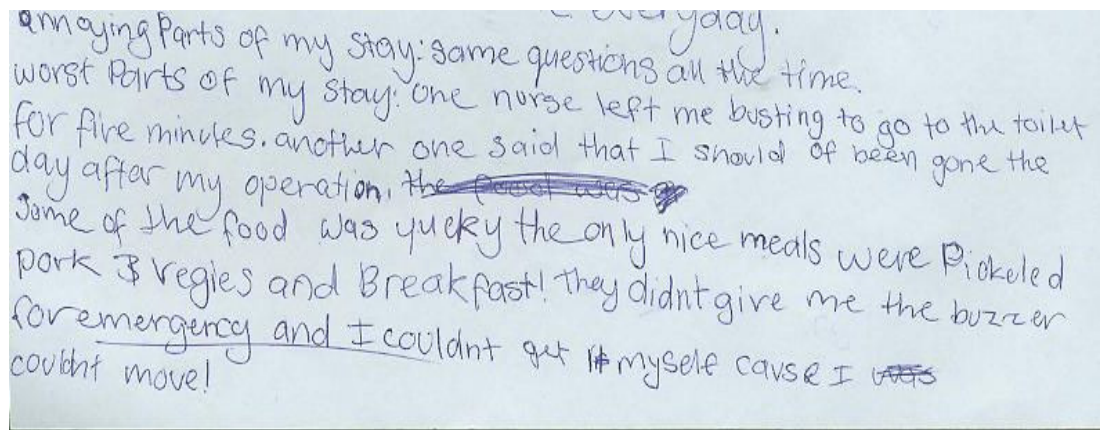 everyday.
annoying Parts of my stay: same questions all the time.
worst Parts of my stay: one nurse left me busting to go to the toilet
for five minutes. another one said that I should of been gone the
day after my operation. the food was
Some of the food was yucky the only nice meals were Pickeled
pork & vegies and Breakfast! They didnt give me the buzzer
for emergency and I couldnt get it myself cause I was
couldnt move!